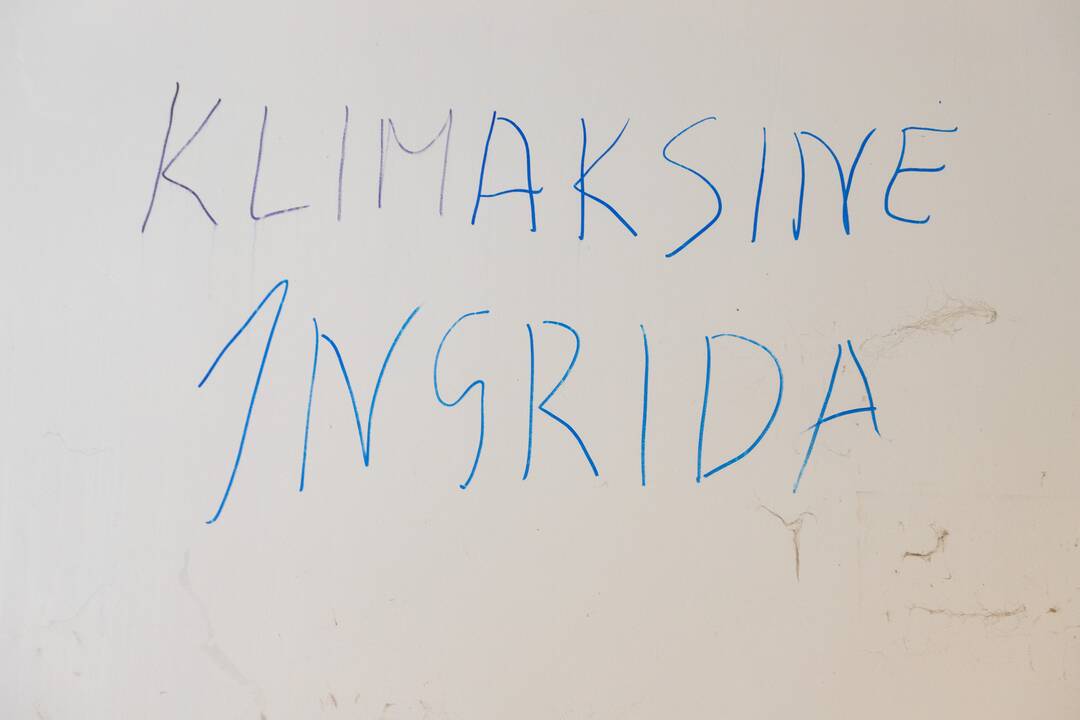 KLIMAKSINE
INGRIDA